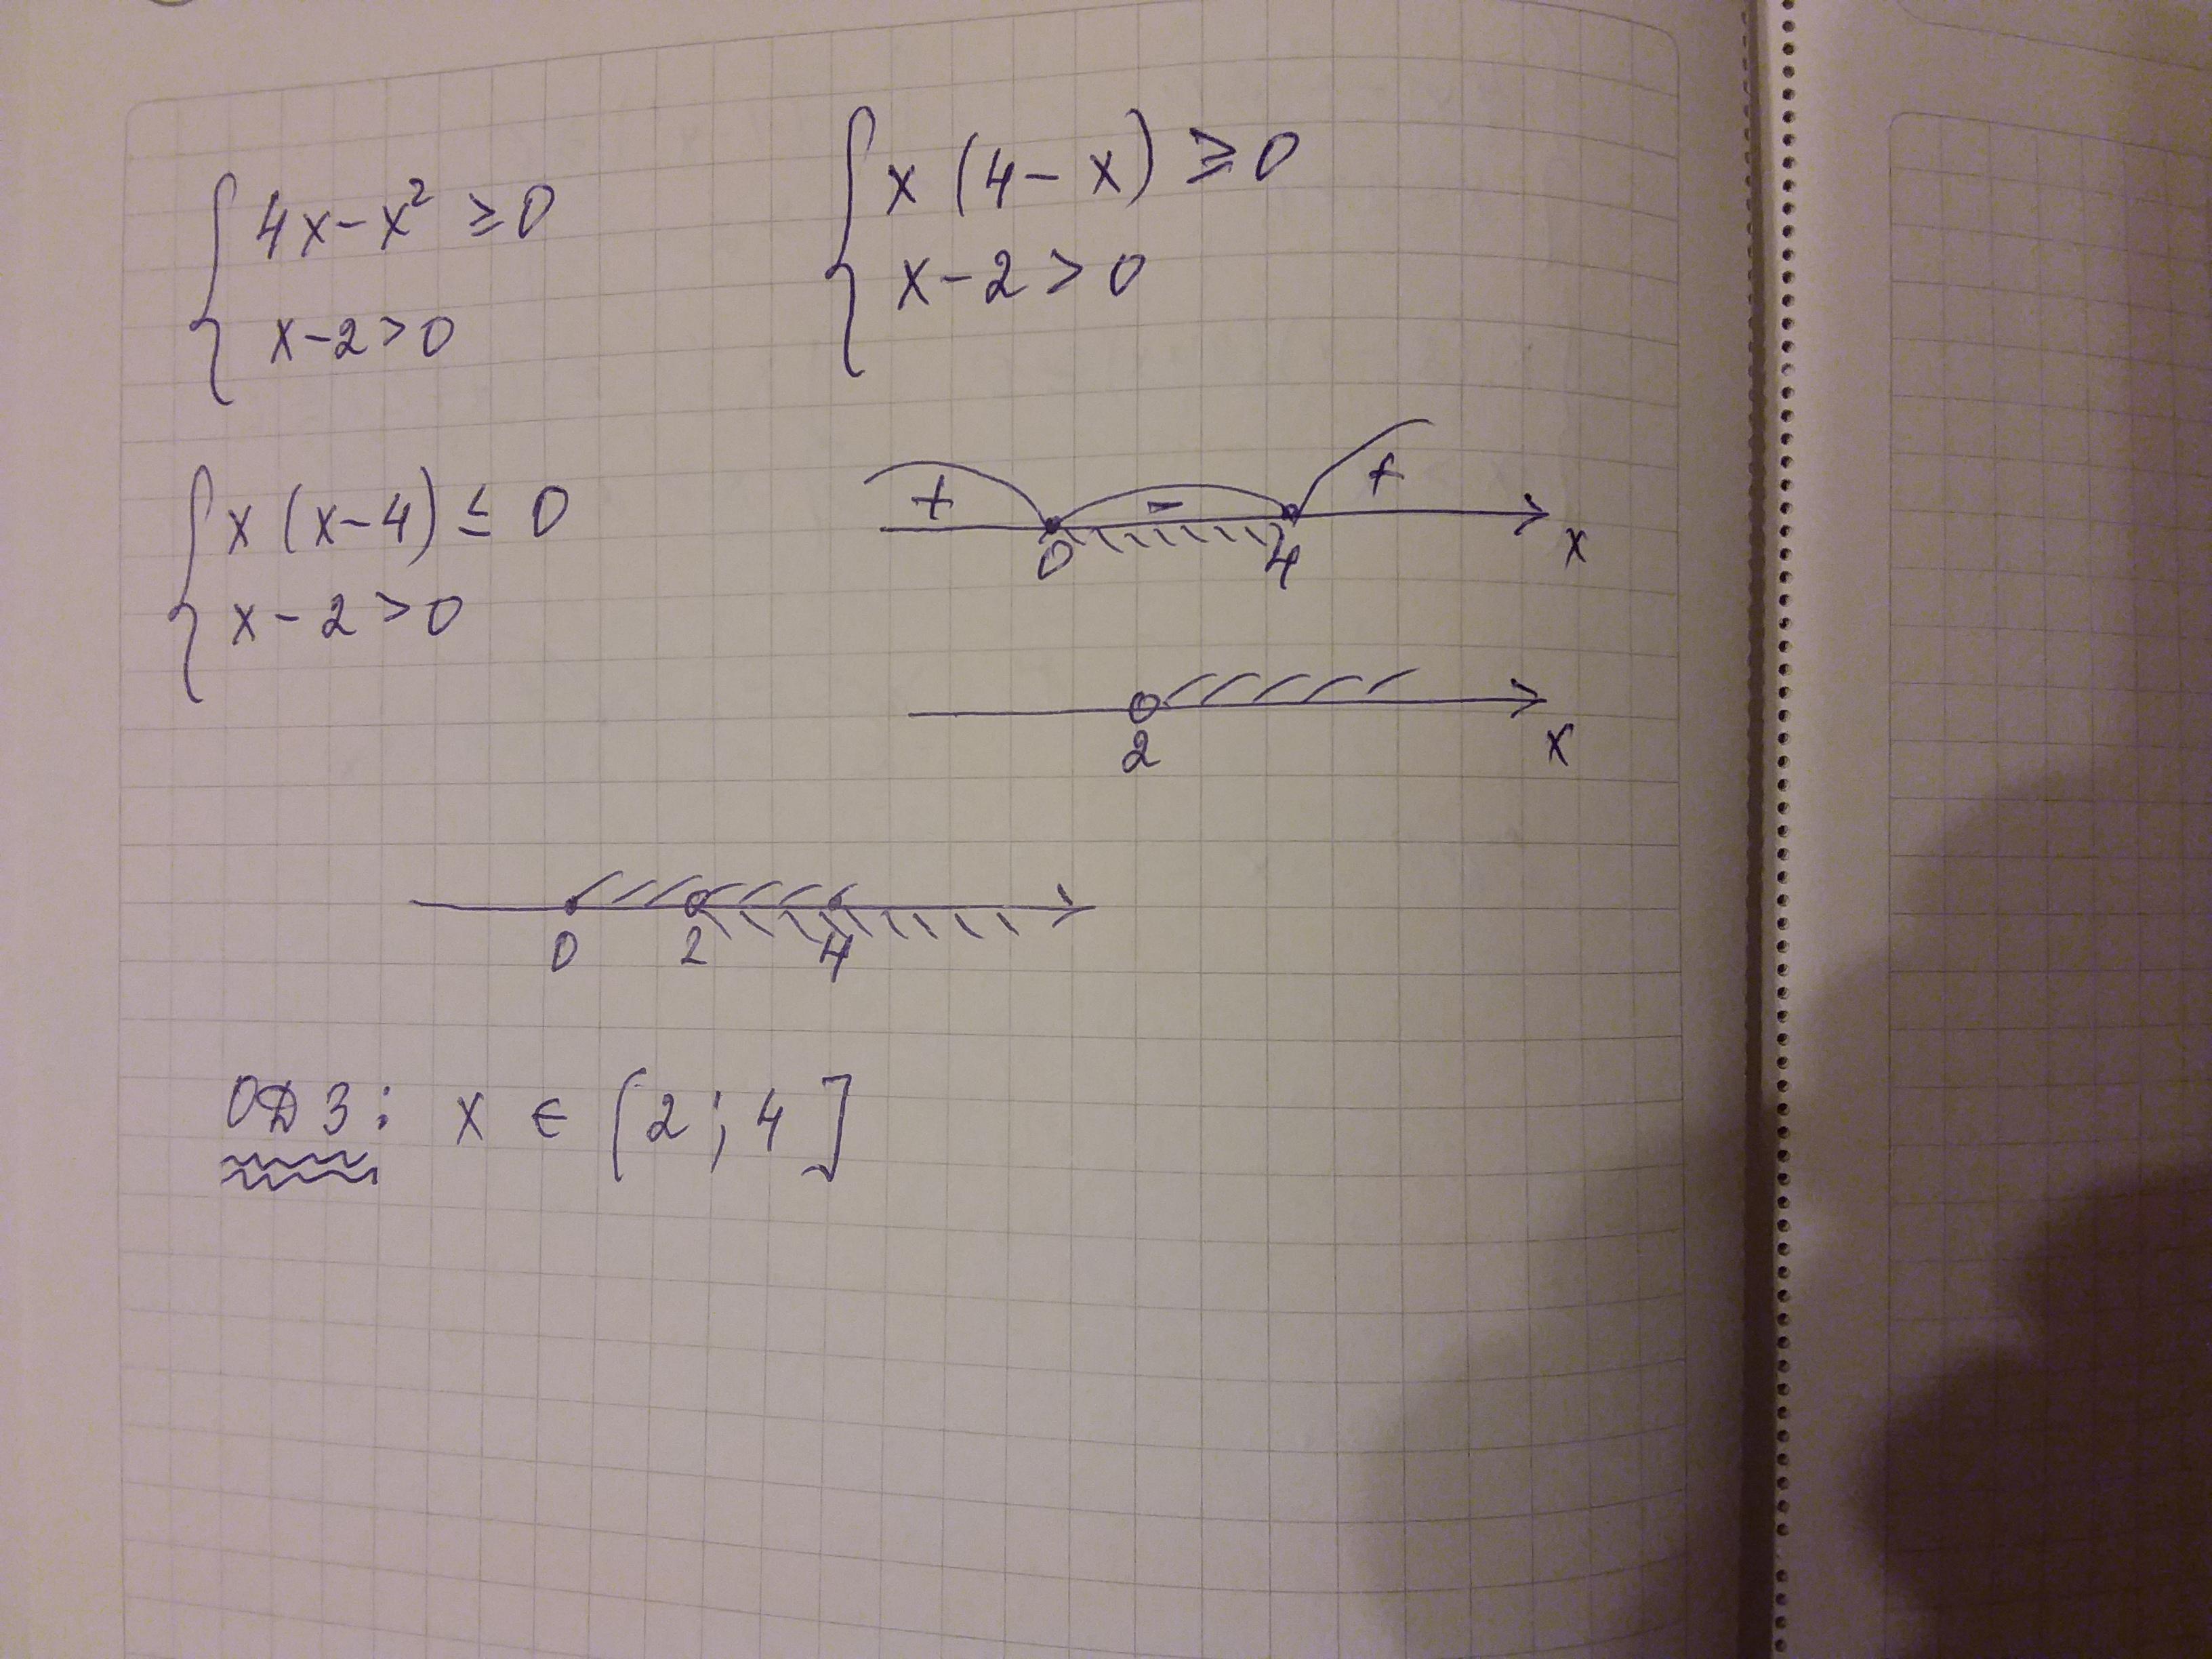 4x-x² ≥0
x-2>0
x(4-x) ≥0
x-2>0
x(x-4) ≤ 0
x-2>0
+ - +
0 4 x
2 x
0 2 4
ОДЗ: x ∈ (2; 4]